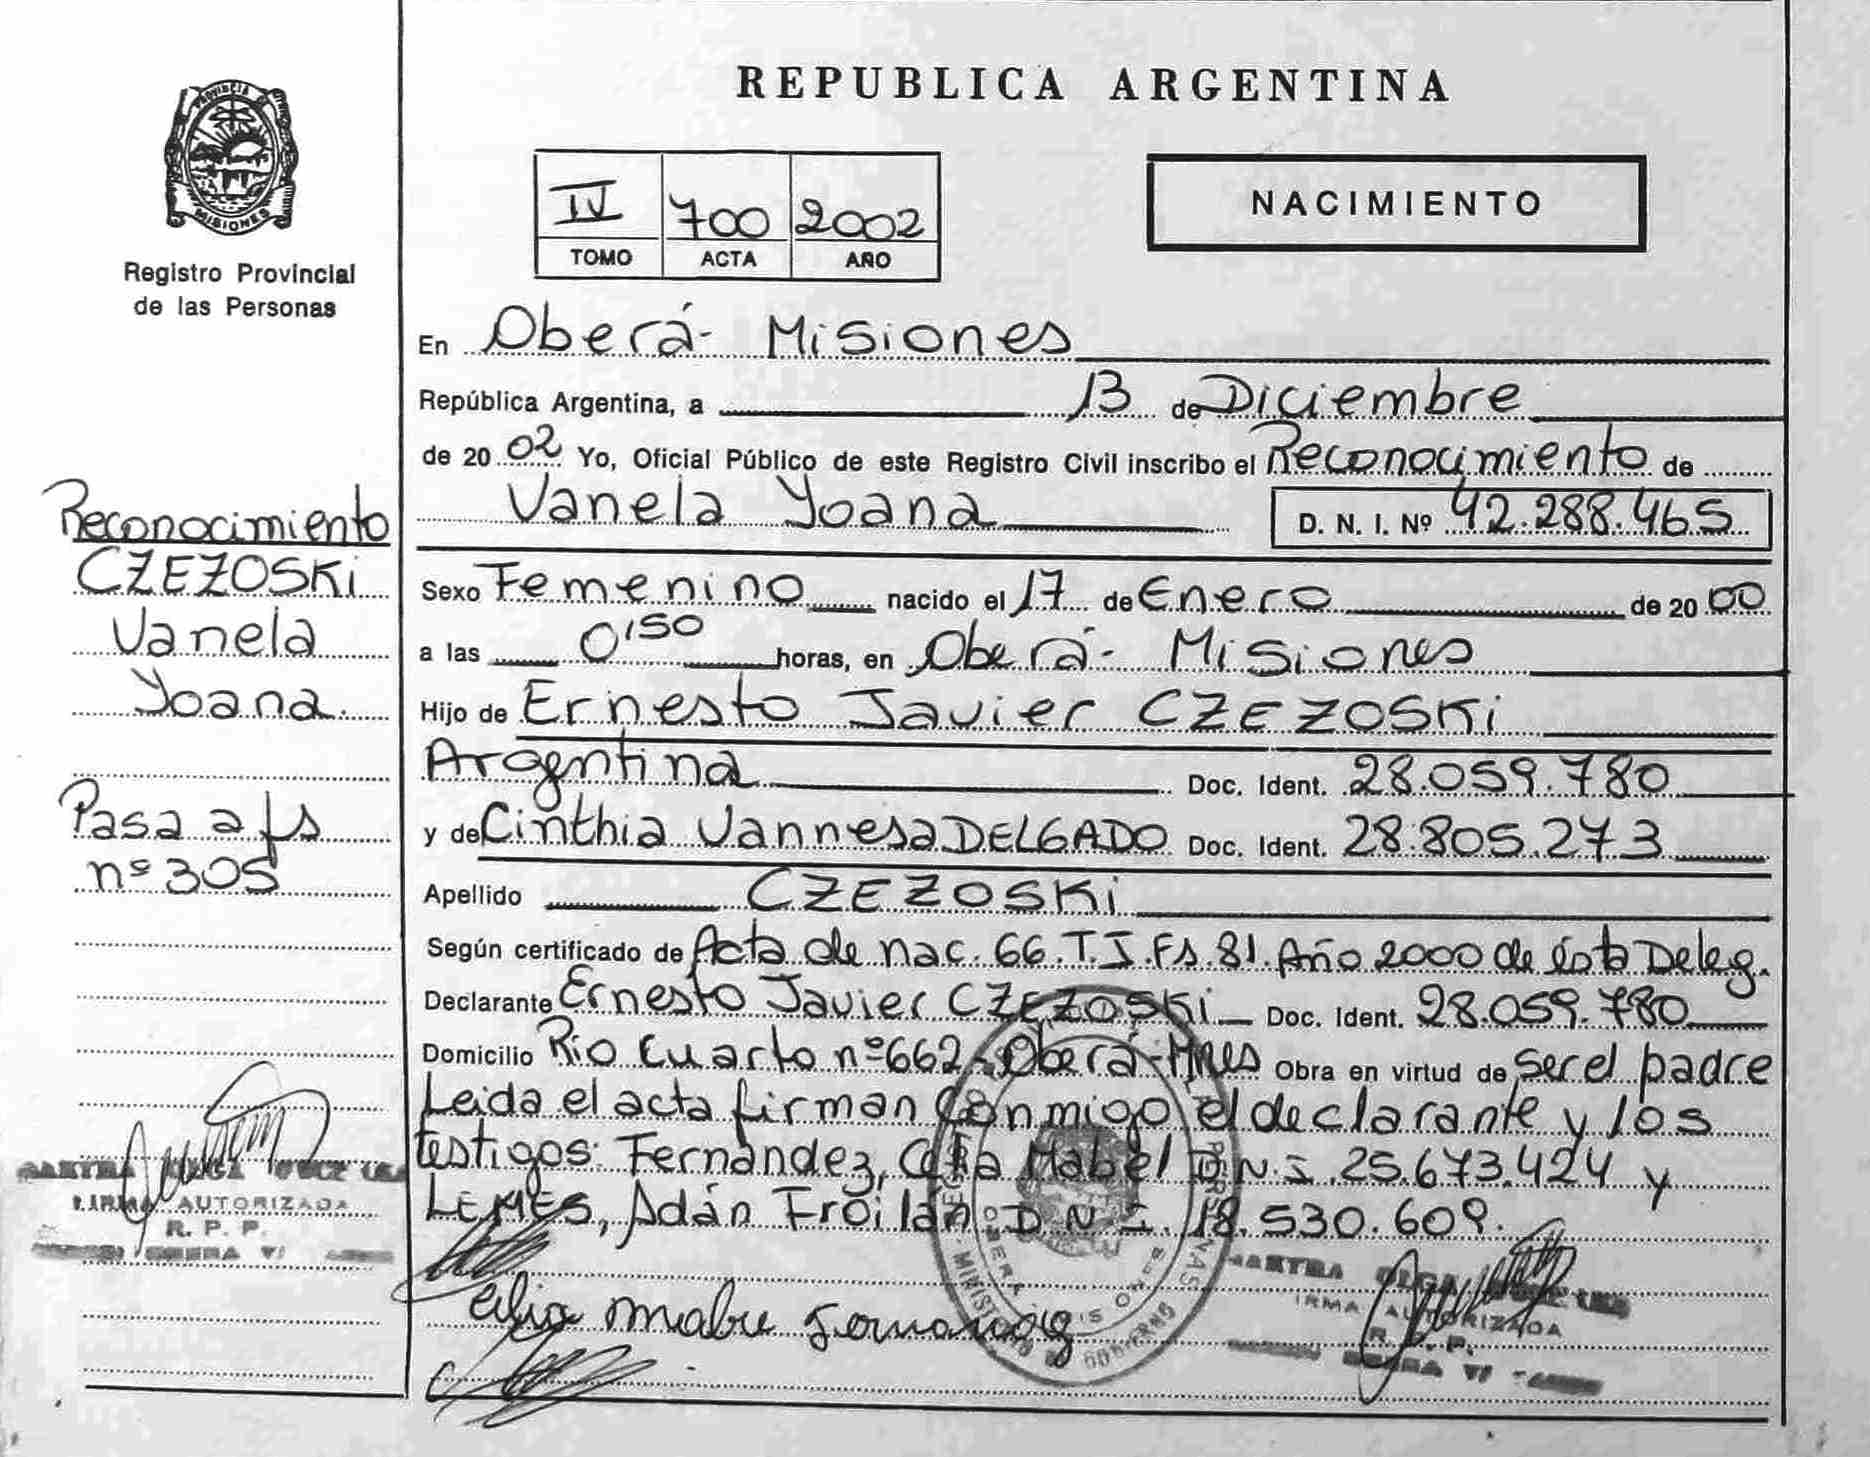 REPUBLICA ARGENTINA
PROVINCIA
MISIONES
Registro Provincial
de las Personas
IV 700 2002
TOMO ACTA AÑO
NACIMIENTO
En Oberá- Misiones
República Argentina, a 13 de Diciembre
de 20 02 Yo, Oficial Público de este Registro Civil inscribo el Reconocimiento de
Vanela Yoana D. N. I. Nº 42.288.465
Sexo Femenino nacido el 17 de Enero de 20 00
a las 0'50 horas, en Oberá- Misiones
Hijo de Ernesto Javier CZEZOSKi
Argentina Doc. Ident. 28.059.780
y de Cinthia Vannesa DELGADO Doc. Ident. 28.805.273
Apellido CZEZOSKi
Según certificado de Acta de nac. 66.T.I.Fs.81.Año 2000 de ésta Deleg.
Declarante Ernesto Javier CZEZOSKi Doc. Ident. 28.059.780
Domicilio Rio Cuarto nº 662- Oberá-Mnes Obra en virtud de ser el padre
Leida el acta firman conmigo el declarante y los
testigos: Fernández, Celia Mabel D.N.I. 25.673.424 y
LEMES, Adán Froilán D.N.I. 18.530.609.
Reconocimiento
CZEZOSKi
Vanela
Yoana.
Pasa a fs
nº 305
OLGA
FIRMA AUTORIZADA
R. P. P.
OLGA
FIRMA AUTORIZADA
R. P. P.